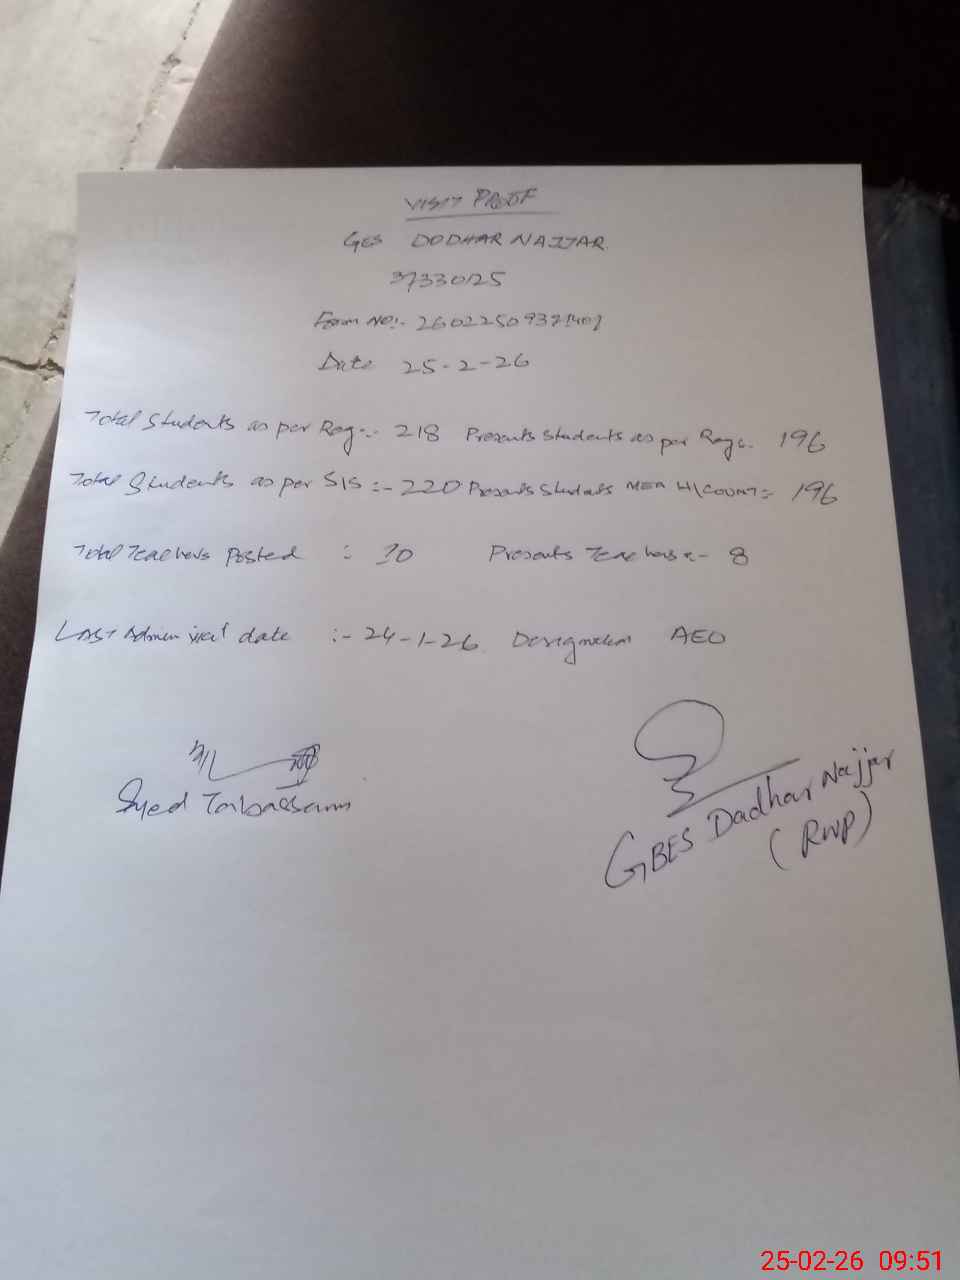 VISIT PROOF
GES DODHAR NAJJAR
37330125
Form No:-
Date 25-2-26
Total Students as per Reg:- 218 Presents Students as per Reg:- 196
Total Students as per SIS :- 220 Presents Students MEA H/COUNT:- 196
Total Teachers Posted : 10 Presents Teachers:- 8
LAST Admin visit date :- 24-1-26 Designation AEO
Syed Tabassam
GBES Dadhar Najjar
(RWP)
25-02-26 09:51